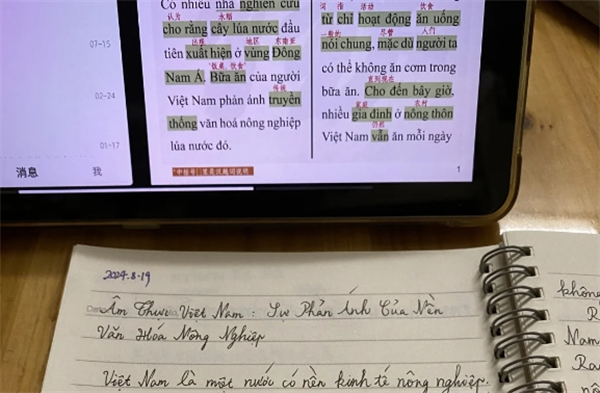 07-15
02-24
01-17
消息
我
Có nhiều nhà nghiên cứu
认为 水稻
cho rằng cây lúa nước đầu
出现 地区 东南亚
tiên xuất hiện ở vùng Đông
饭菜 饮食
Nam Á. Bữa ăn của người
传统
Việt Nam phản ánh truyền
thống văn hoá nông nghiệp
lúa nước đó.
"中括号" 里是汉越词说明
活动 饮食
từ chỉ hoạt động ăn uống
一般的 尽管 人们
nói chung, mặc dù người ta
có thể không ăn cơm trong
直到现在
bữa ăn. Cho đến bây giờ,
家庭 农村
nhiều gia đình ở nông thôn
仍然
Việt Nam vẫn ăn mỗi ngày
1
2024.8.19
Âm Thực Việt Nam : Sự Phản Ánh Của Nền
Văn Hóa Nông Nghiệp
Việt Nam là một nước có nền kinh tế nông nghiệp.
không
Ra
Nam
Ra